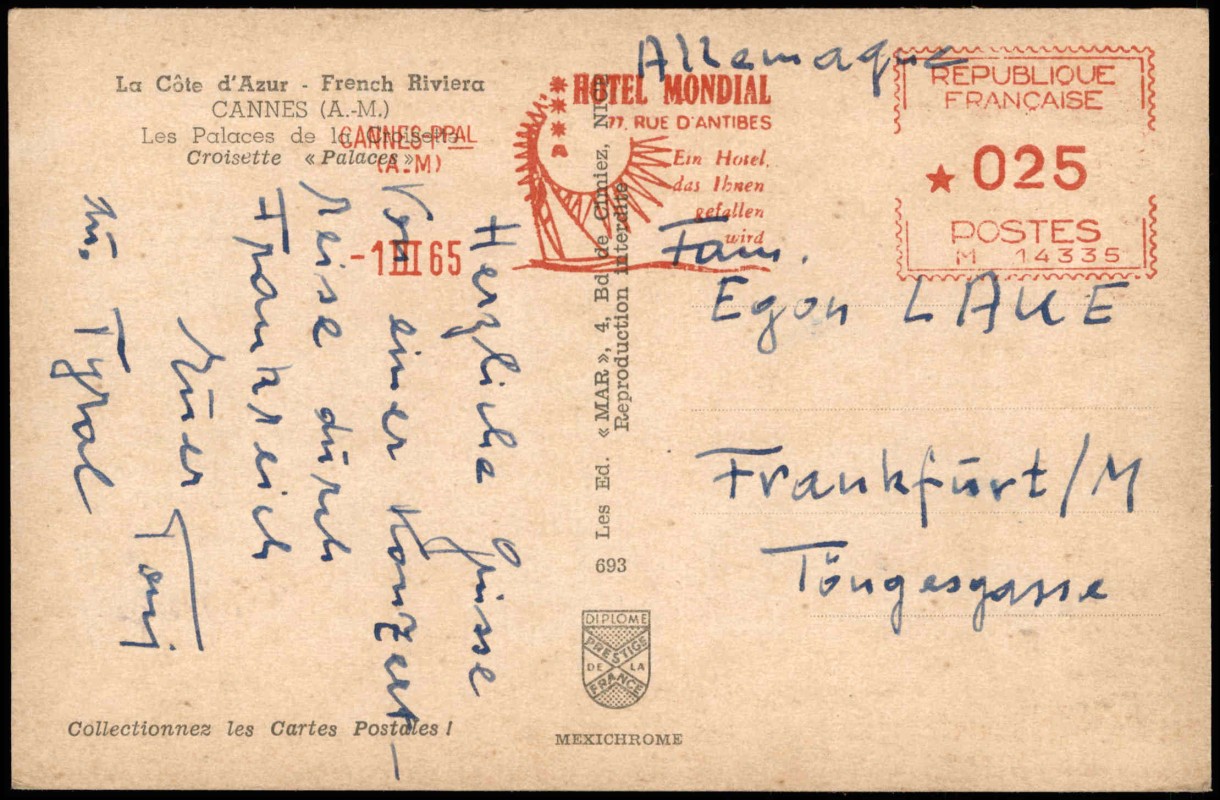 La Côte d'Azur - French Riviera
CANNES (A.-M.)
Les Palaces de la Croisette
Croisette « Palaces »
CANNES-PPAL
(A.M)
-1 III 65
HOTEL MONDIAL
77, RUE D'ANTIBES
Ein Hotel,
das Ihnen
gefallen
wird
REPUBLIQUE
FRANÇAISE
★ 025
POSTES
M 14335
Herzliche Grüsse
Von einer Konzert-
reise durch
Frankreich
Euer Tonj
693 Les Ed. « MAR », 4, Bd. de Cimiez, NICE
Reproduction interdite
Allemagne
Fam.
Egon LAUE
Frankfurt/M
Töngesgasse
DIPLOME
PRESTIGE
DE LA
FRANCE
MEXICHROME
Collectionnez les Cartes Postales !